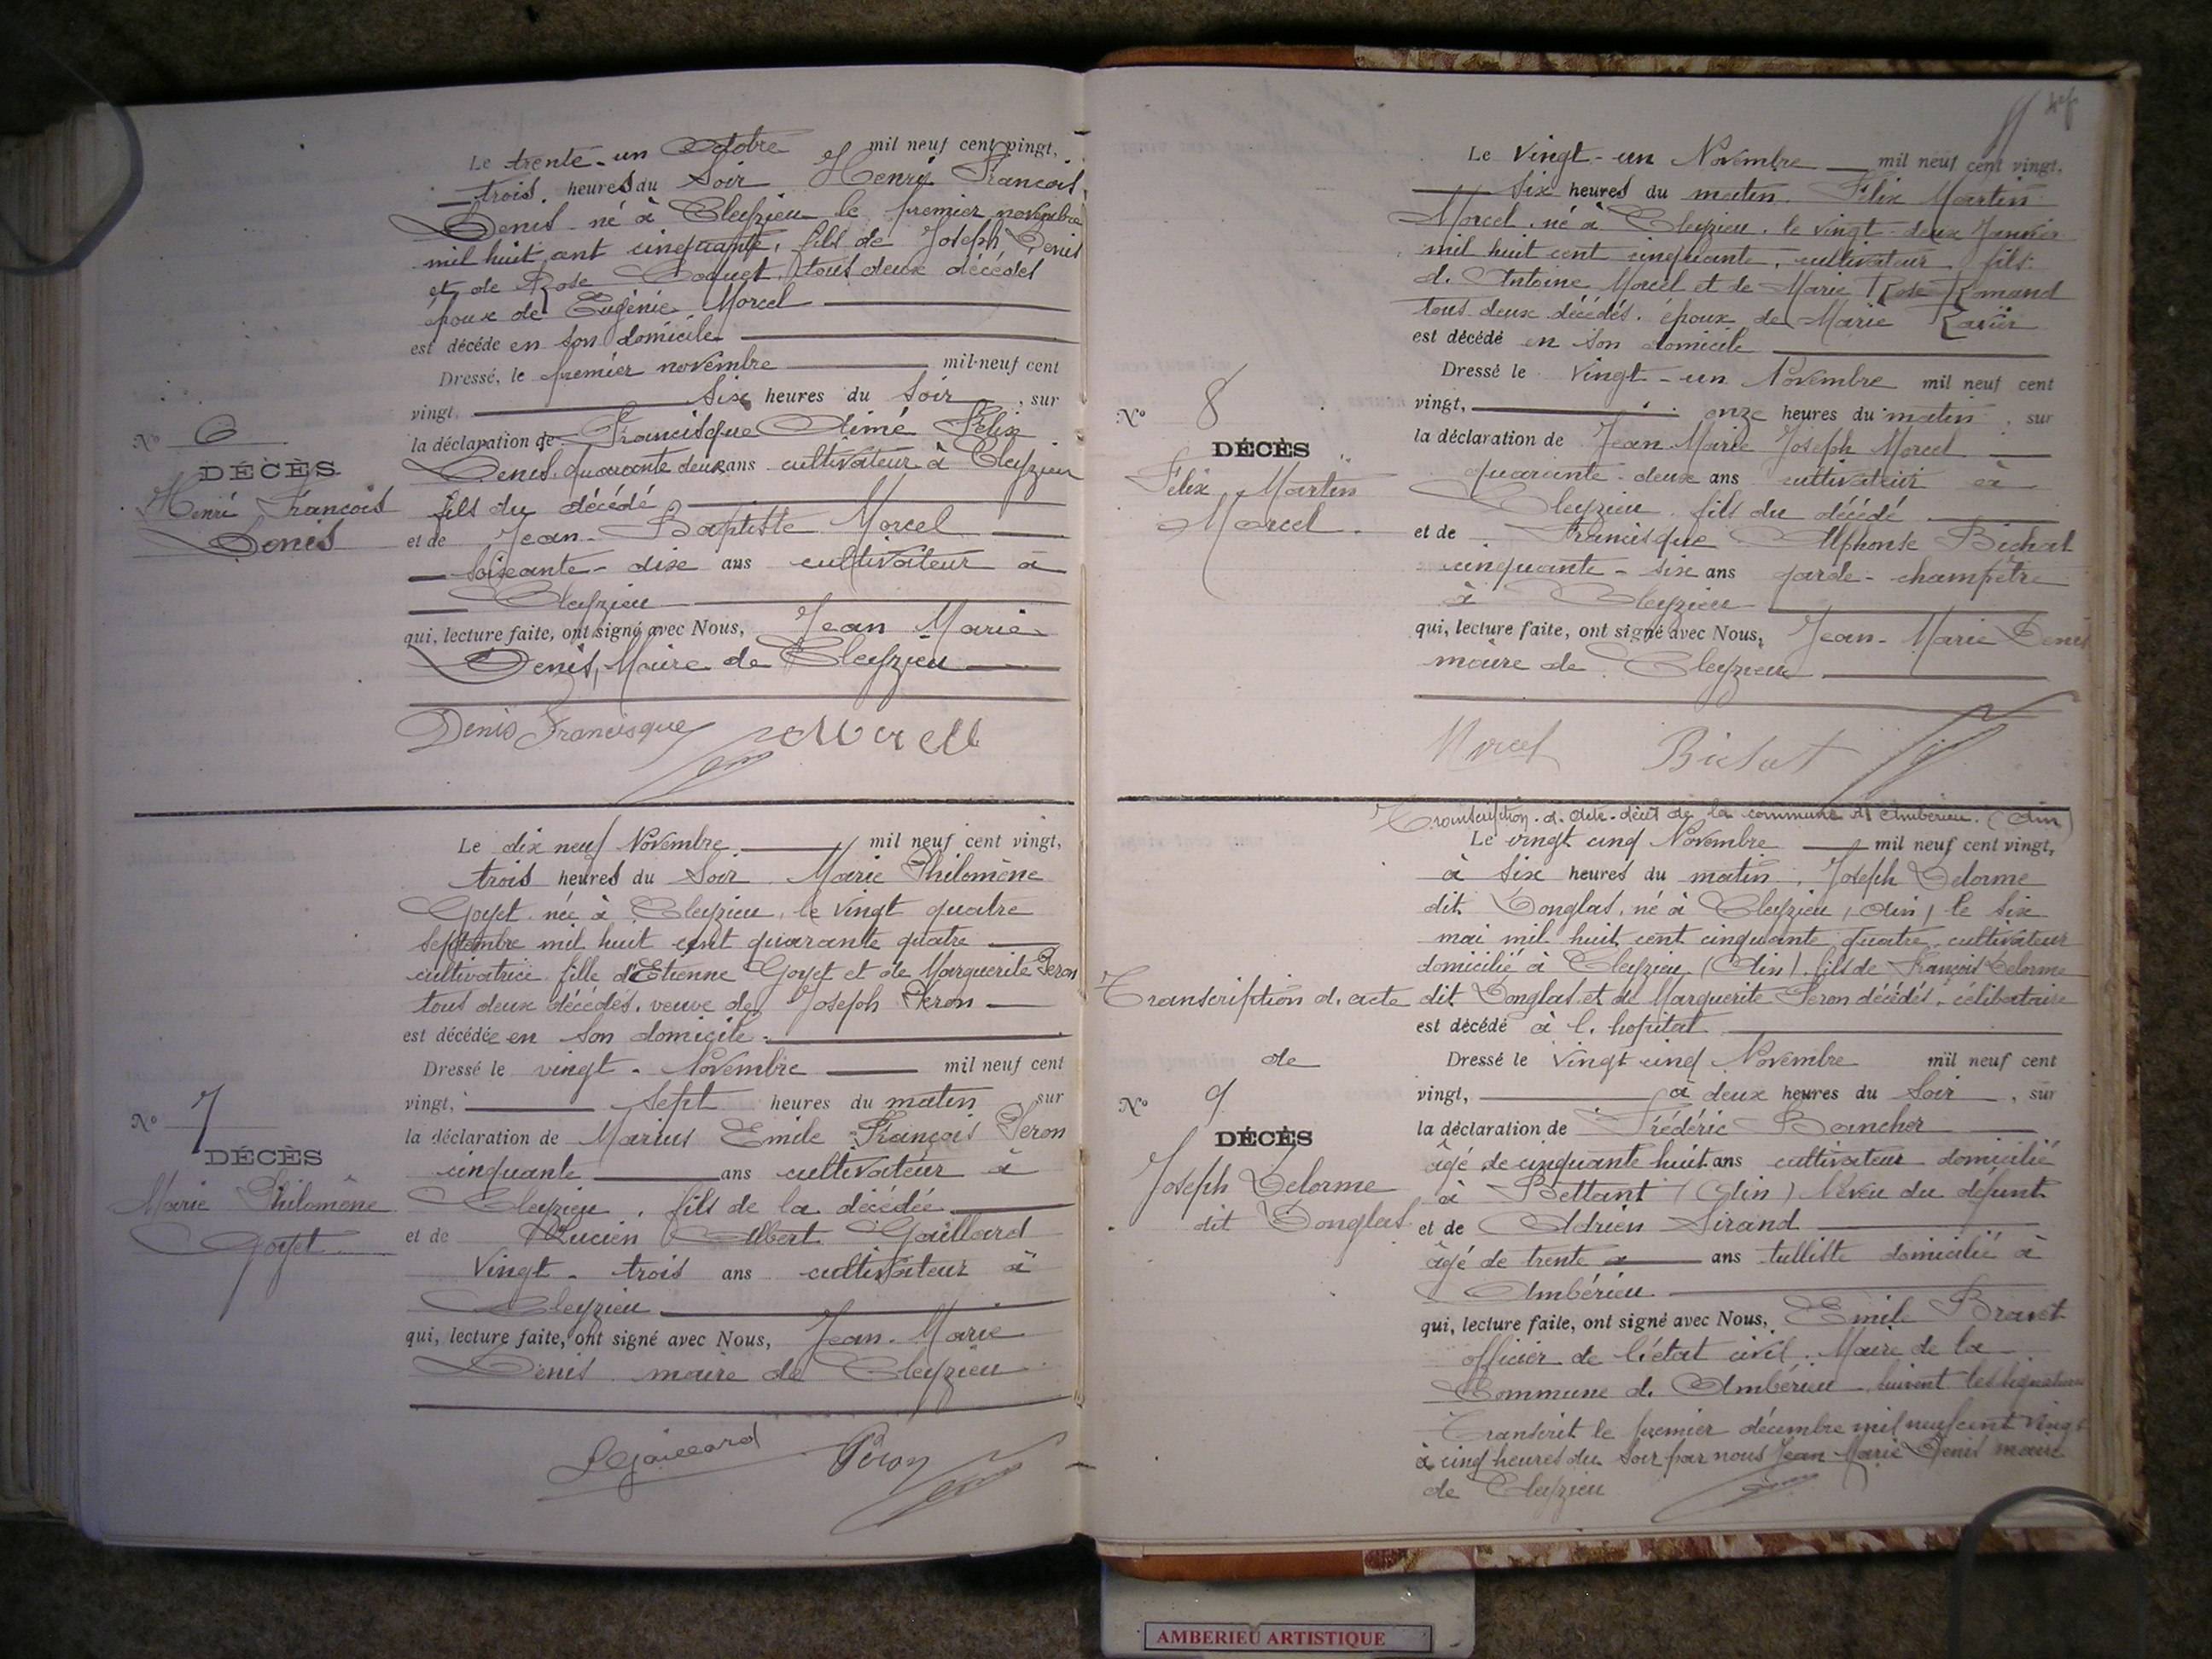 Le trente-un Octobre mil neuf cent vingt,
trois heures du Soir Henri François
Denis né à Cleyzieu le premier novembre
mil huit cent cinquante, fils de Joseph Denis
et de Roze Coquet, tous deux décédés
époux de Eugénie Morcel
est décédé en son domicile
Dressé, le premier novembre mil-neuf cent
vingt, Six heures du Soir, sur
la déclaration de Francisque Aimé Félix
Denis quarante deux ans cultivateur à Cleyzieu
fils du décédé
et de Jean-Baptiste Morcel
soixante-dix ans cultivateur à
Cleyzieu
qui, lecture faite, ont signé avec Nous, Jean Marie
Denis, Maire de Cleyzieu
Denis Francisque Morcel
No 6
DÉCÈS
Henri François
Denis
Le dix neuf Novembre mil neuf cent vingt,
trois heures du Soir Marie Philomène
Goyet née à Cleyzieu, le vingt quatre
Septembre mil huit cent quarante quatre
cultivatrice fille d'Etienne Goyet et de Marguerite Peron
tous deux décédés, veuve de Joseph Peron
est décédée en son domicile
Dressé le vingt - Novembre mil neuf cent
vingt, Sept heures du matin sur
la déclaration de Marius Emile François Peron
cinquante ans cultivateur à
Cleyzieu, fils de la décédée
et de Lucien Albert Gaillard
Vingt-trois ans cultivateur à
Cleyzieu
qui, lecture faite, ont signé avec Nous, Jean-Marie
Denis maire de Cleyzieu
LGaillard Péron
No 7
DÉCÈS
Marie Philomène
Goyet
Le Vingt-un Novembre mil neuf cent vingt,
Six heures du matin Félix Martin
Morcel, né à Cleyzieu, le vingt-deux Janvier
mil huit cent cinquante, cultivateur fils
d. Antoine Morcel et de Marie Rose Romand
tous deux décédés, époux de Marie Ravier
est décédé en son domicile
Dressé le Vingt-un Novembre mil neuf cent
vingt, onze heures du matin, sur
la déclaration de Jean Marie Joseph Morcel
quarante-deux ans cultivateur à
Cleyzieu fils du décédé
et de Francisque Alphonse Bichat
cinquante-six ans garde-champêtre
à Cleyzieu
qui, lecture faite, ont signé avec Nous, Jean-Marie Denis
maire de Cleyzieu
Morcel Bichat
No 8
DÉCÈS
Félix Martin
Morcel
Transcription d. acte-décès de la commune d'Ambérieu. (Ain)
Le vingt cinq Novembre mil neuf cent vingt,
à Six heures du matin, Joseph Delorme
dit Donglas, né à Cleyzieu (Ain) le Six
mai mil huit cent cinquante quatre cultivateur
domicilié à Cleyzieu (Ain), fils de François Delorme
dit Donglas et de Marguerite Peron décédés, célibataire
est décédé à l. hopital
Dressé le Vingt cinq Novembre mil neuf cent
vingt, à deux heures du Soir, sur
la déclaration de Frédéric Bancher
âgé de cinquante huit ans cultivateur domicilié
à Bettant (Ain) Neveu du défunt
et de Adrien Sirand
âgé de trente ans tulliste domicilié à
Ambérieu
qui, lecture faite, ont signé avec Nous, Emile Bravet
officier de l'état civil. Maire de la
Commune d. Ambérieu suivent les signatures
Transcrit le premier décembre mil neuf cent vingt
à cinq heures du Soir par nous Jean-Marie Denis maire
de Cleyzieu
Transcription d. acte
de
No 9
DÉCÈS
Joseph Delorme
dit Donglas
AMBERIEU ARTISTIQUE